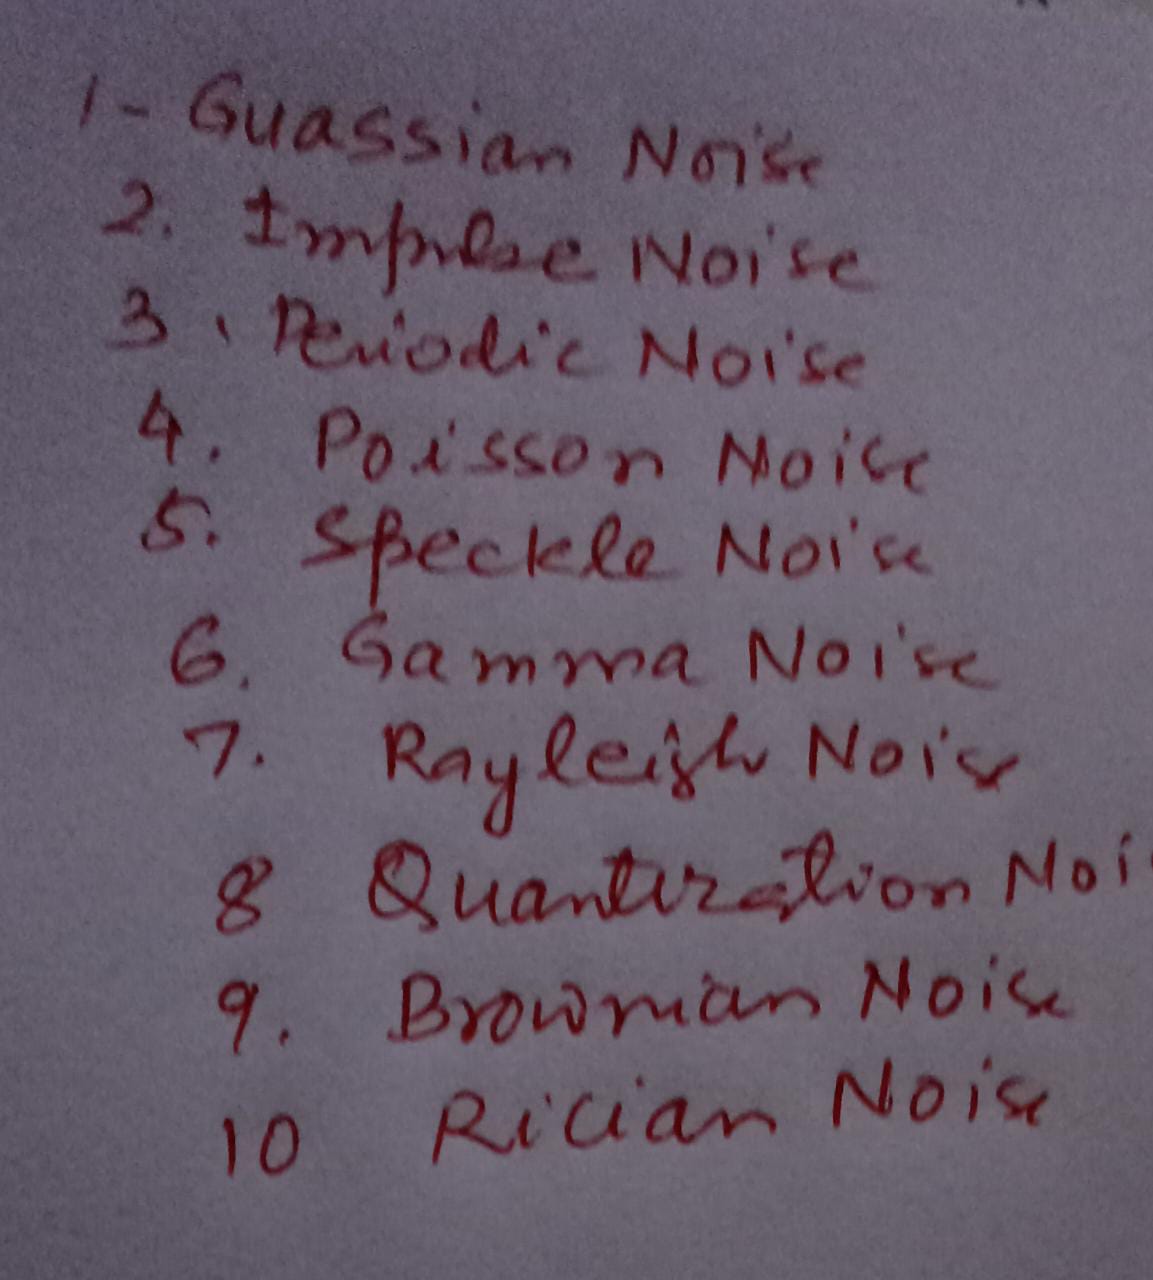 1- Guassian Noise
2. Impulse Noise
3. Periodic Noise
4. Poisson Noise
5. Speckle Noise
6. Gamma Noise
7. Rayleigh Noise
8 Quantization Noi
9. Brownian Noise
10 Rician Noise